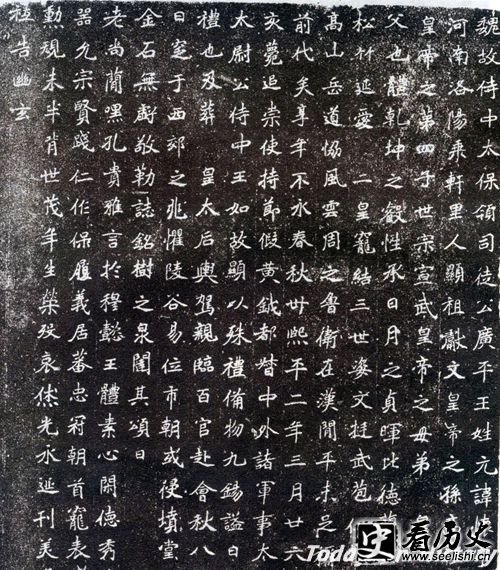 魏故侍中太保領司徒公廣平王姓元諱
河南洛陽乘軒里人顯祖獻文皇帝之孫
皇帝之第四子世宗宣武皇帝之母弟
父也體乾坤之叡性承日月之貞暉比德
松竹延愛二皇寵結三世姿文挺武苞仁
嵩山岳道協風雲周之魯衛在漢間平未足
前代矣享年不永春秋卅熙平二年三月廿六
亥薨追崇使持節假黃鉞都督中外諸軍事太
太尉公侍中王如故顯以殊禮備物九錫謚曰
禮也及葬皇太后輿駕親臨百官赴會秋八
日窆于西郊之兆懼陵谷易位市朝或侵墳堂
金石無虧敬勒誌銘樹之泉闥其頌曰
老尚簡嘿孔貴雅言於穆懿王體素心閑德秀
器允宗賢踐仁作保履義居蕃忠冠朝首寵表
勳覯未半背世茂年生榮歿哀休光永延刊美
告幽玄
史 看历史
www.seelishi.cn